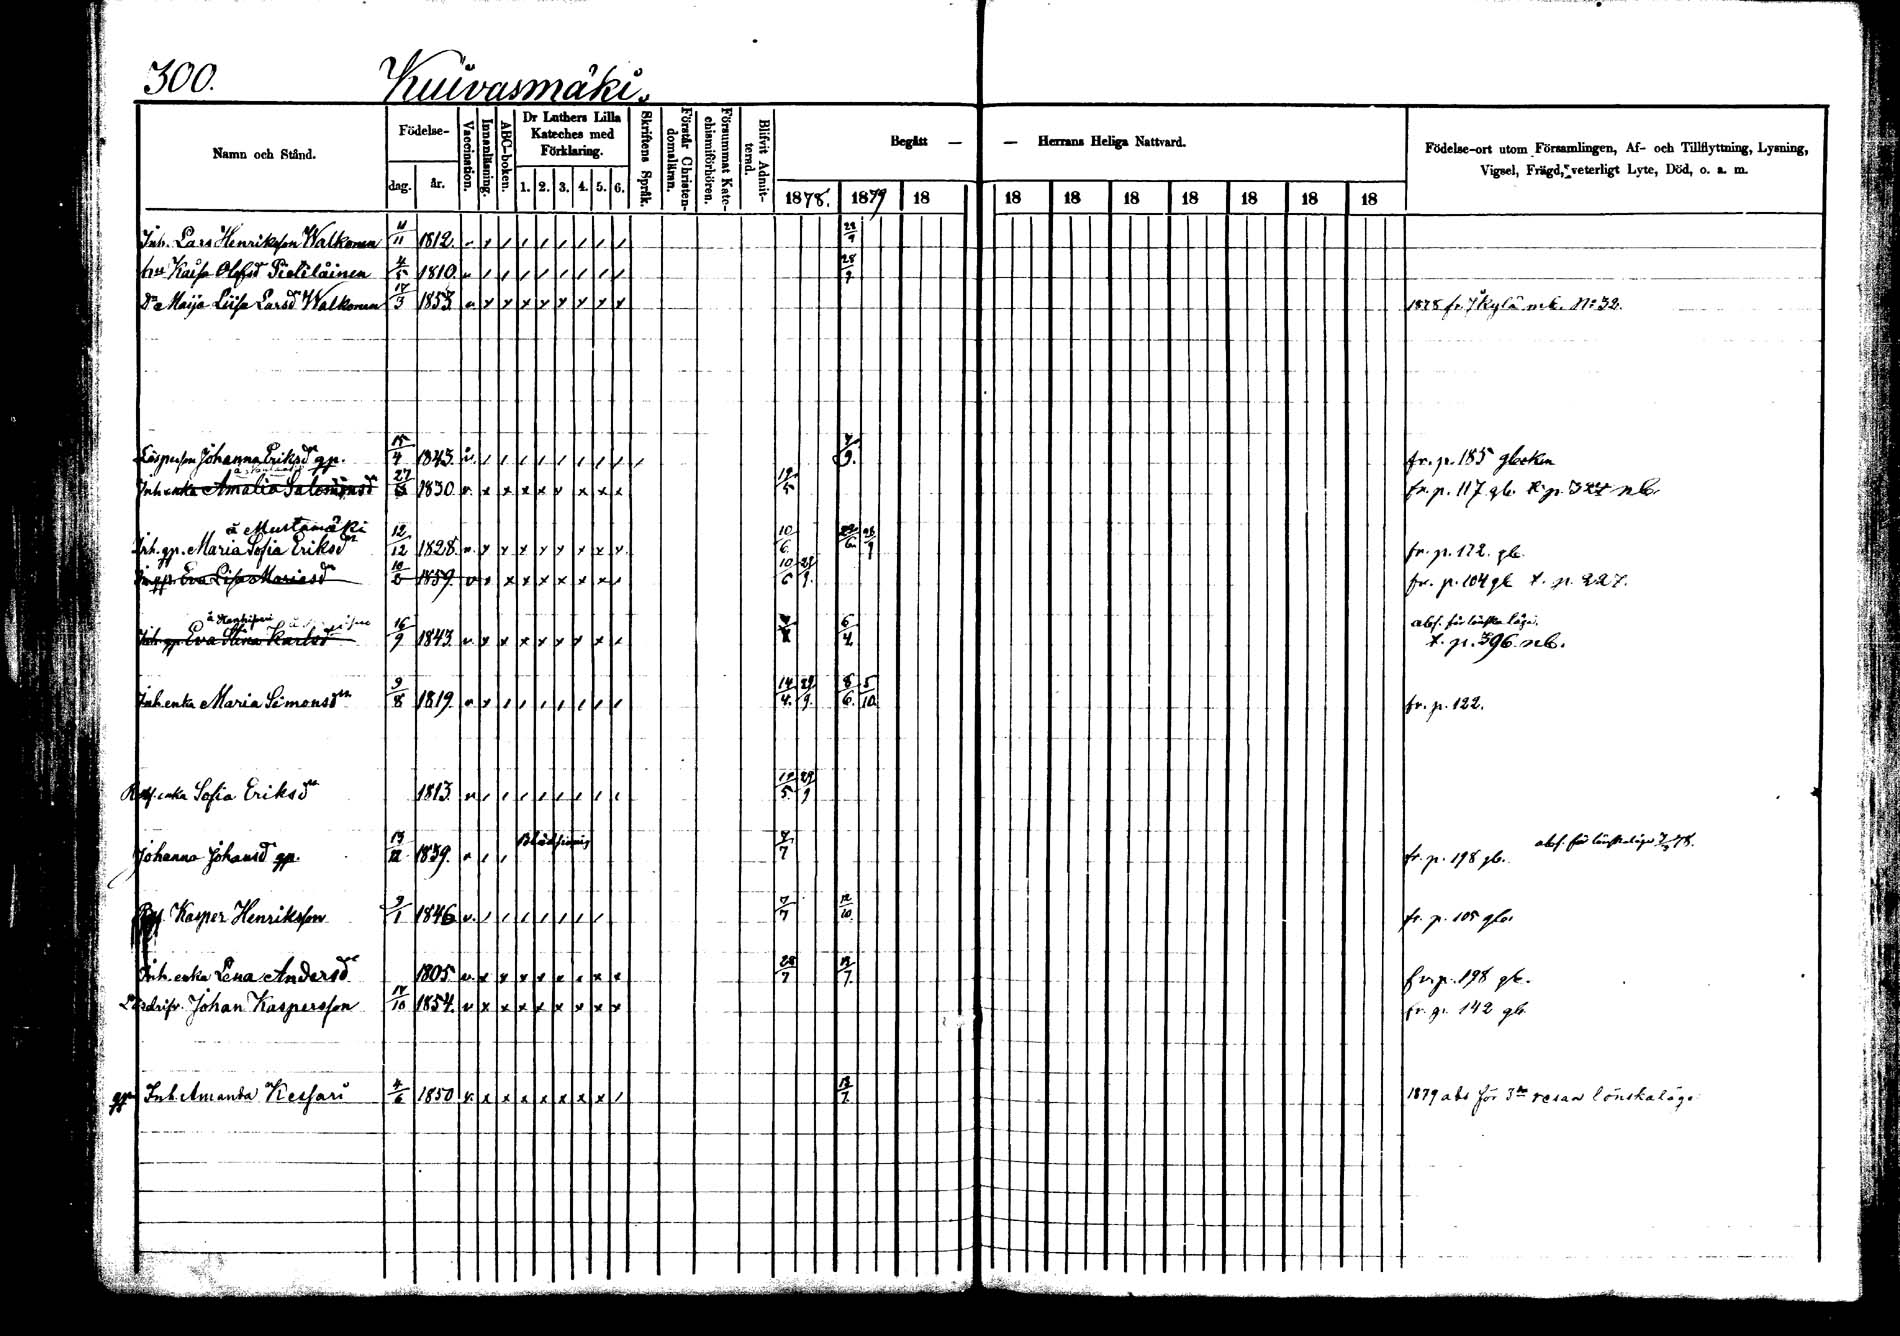 300. Kuivasmäki.
Namn och Stånd. Födelse- dag. år. Vaccination. Innanläsning. ABC-boken. Dr Luthers Lilla Kateches med Förklaring. 1. 2. 3. 4. 5. 6. Skriftens Språk. Förstår Christendomsläran. Försummat Katechismiförhören. Blifvit Admitterad. Begått — — Herrans Heliga Nattvard. Födelse-ort utom Församlingen, Af- och Tillflyttning, Lysning, Vigsel, Frägd, veterligt Lyte, Död, o. a. m.
1878. 1879 18 18 18 18 18 18 18 18
Inh. Lars Henriksson Walkonen 11/11 1812. 28/9
hu Kaisa Olofsd Pietiläinen 4/5 1810. 28/9
Dr Maija Liisa Larsd Walkonen 17/3 1853 1878 fr. Jkylä mb. No 32.
Lösperson Johanna Eriksdr gp. 15/4 1843. 7/9. fr. p. 185 gboken
Inh. enka Amalia Salomonsd 27/8 1830 12/5 fr. p. 117 gb. t. p. 324 nb.
ä Mustamäki
Inh. gp. Maria Sofia Eriksd 12/12 1828 10/6. 28/9 fr. p. 172. gb.
gp. Eva Lisa Mariasd 10/6 1859. 10/6 29/9. fr. p. 104 gb t. p. 227.
abs. för lönska läge.
Inh. gp. Eva Stina Karlsd 16/9 1843. 6/4 t. p. 396 nb.
Inh. enka Maria Simonsdr 9/8 1819. 14/4. 29/9. 8/6. 5/10 fr. p. 122.
enka Sofia Eriksdr 1813. 19/5. 29/9
Johanna Johansd gp. 13/12 1839. Blädsinnig 7/7 fr. p. 198 gb. abs. för lönskaläge 78.
Kasper Henriksson 9/1 1846 7/7 12/10. fr. p. 105 gb.
Inh. enka Lena Andersd 1805 28/7 13/7. fr. p. 198 gb.
Johan Kaspersson 17/10 1854. fr. p. 142 gb
gp. Inh. Amanda Kessari 4/6 1850 13/7. 1879 abs för 3dje resan lönskaläge